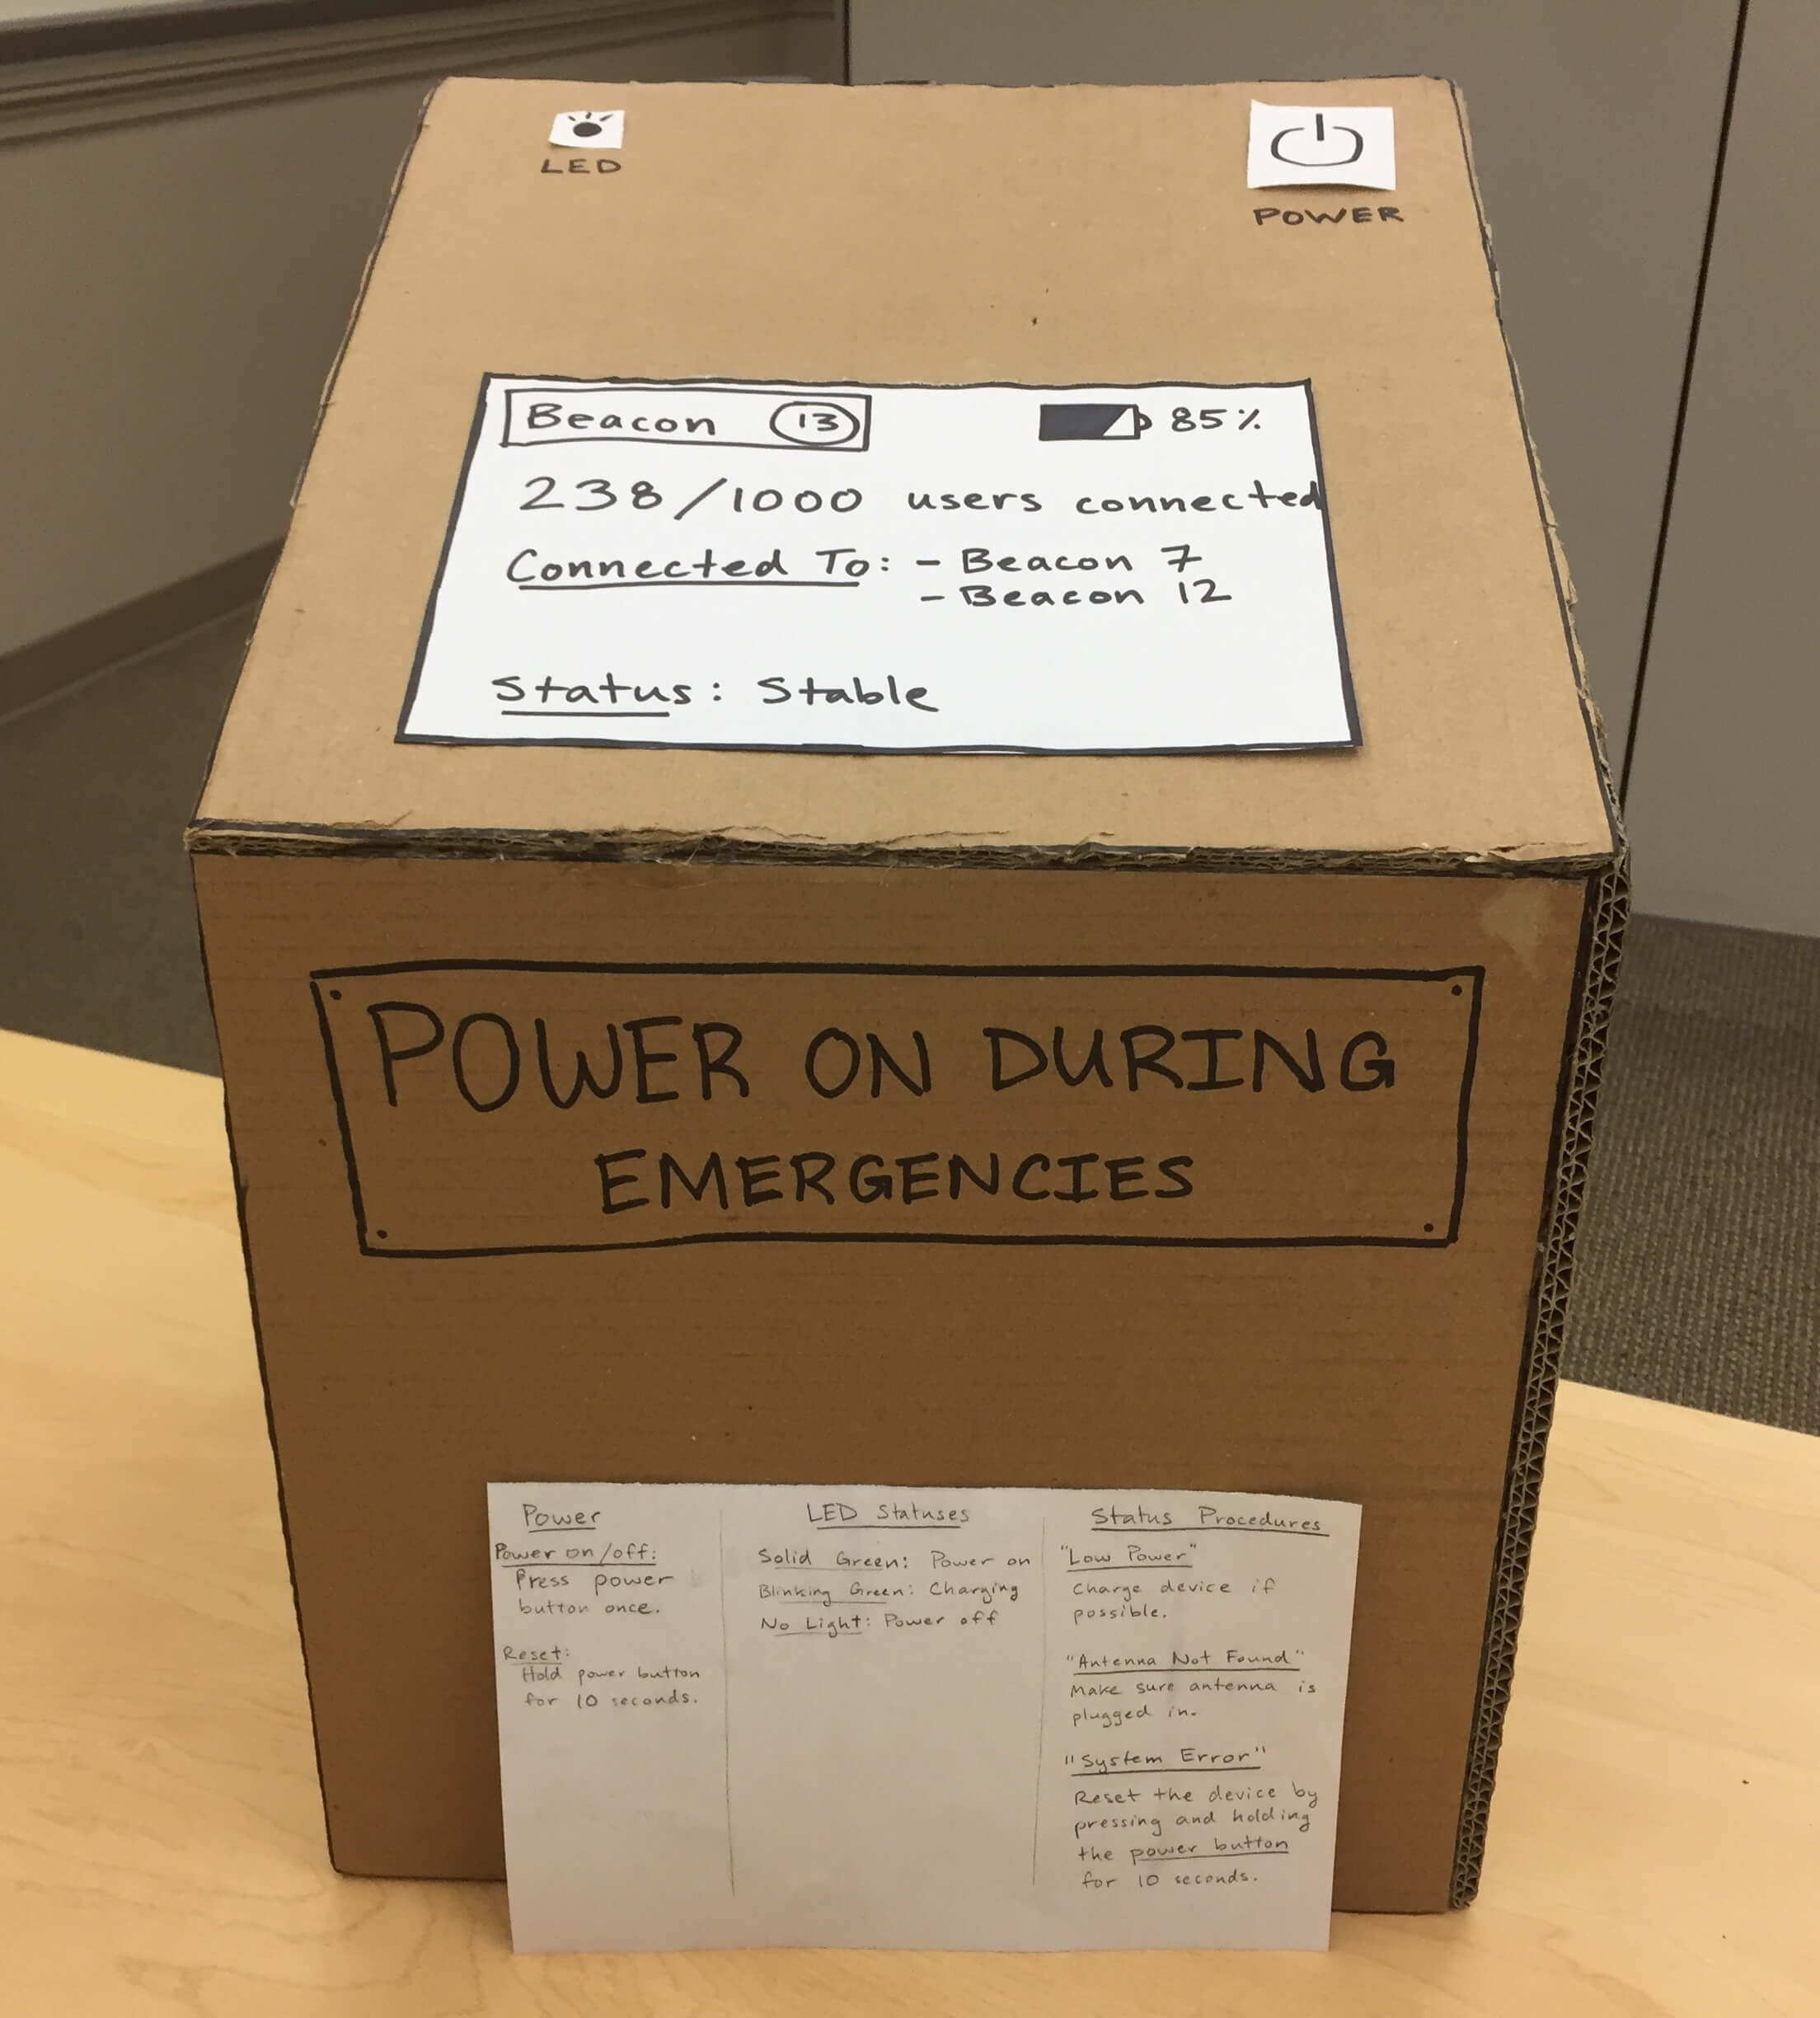 LED
POWER
Beacon 13
85%
238/1000 users connected
Connected To: - Beacon 7
- Beacon 12
Status: Stable
POWER ON DURING
EMERGENCIES
Power
Power on/off:
Press power
button once.
Reset:
Hold power button
for 10 seconds.
LED Statuses
Solid Green: Power on
Blinking Green: Charging
No Light: Power off
Status Procedures
"Low Power"
Charge device if
possible.
"Antenna Not Found"
Make sure antenna is
plugged in.
"System Error"
Reset the device by
pressing and holding
the power button
for 10 seconds.